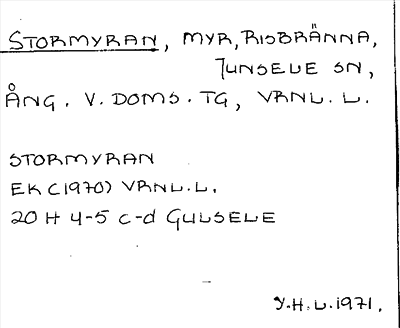 STORMYRAN, MYR, RISBRÄNNA,
JUNSELE SN,
ÅNG. V. DOMS. TG, VRNL. L.
STORMYRAN
EK (1970) VRNL. L.
20 H 4-5 c-d GULSELE
Y.H.L. 1971.